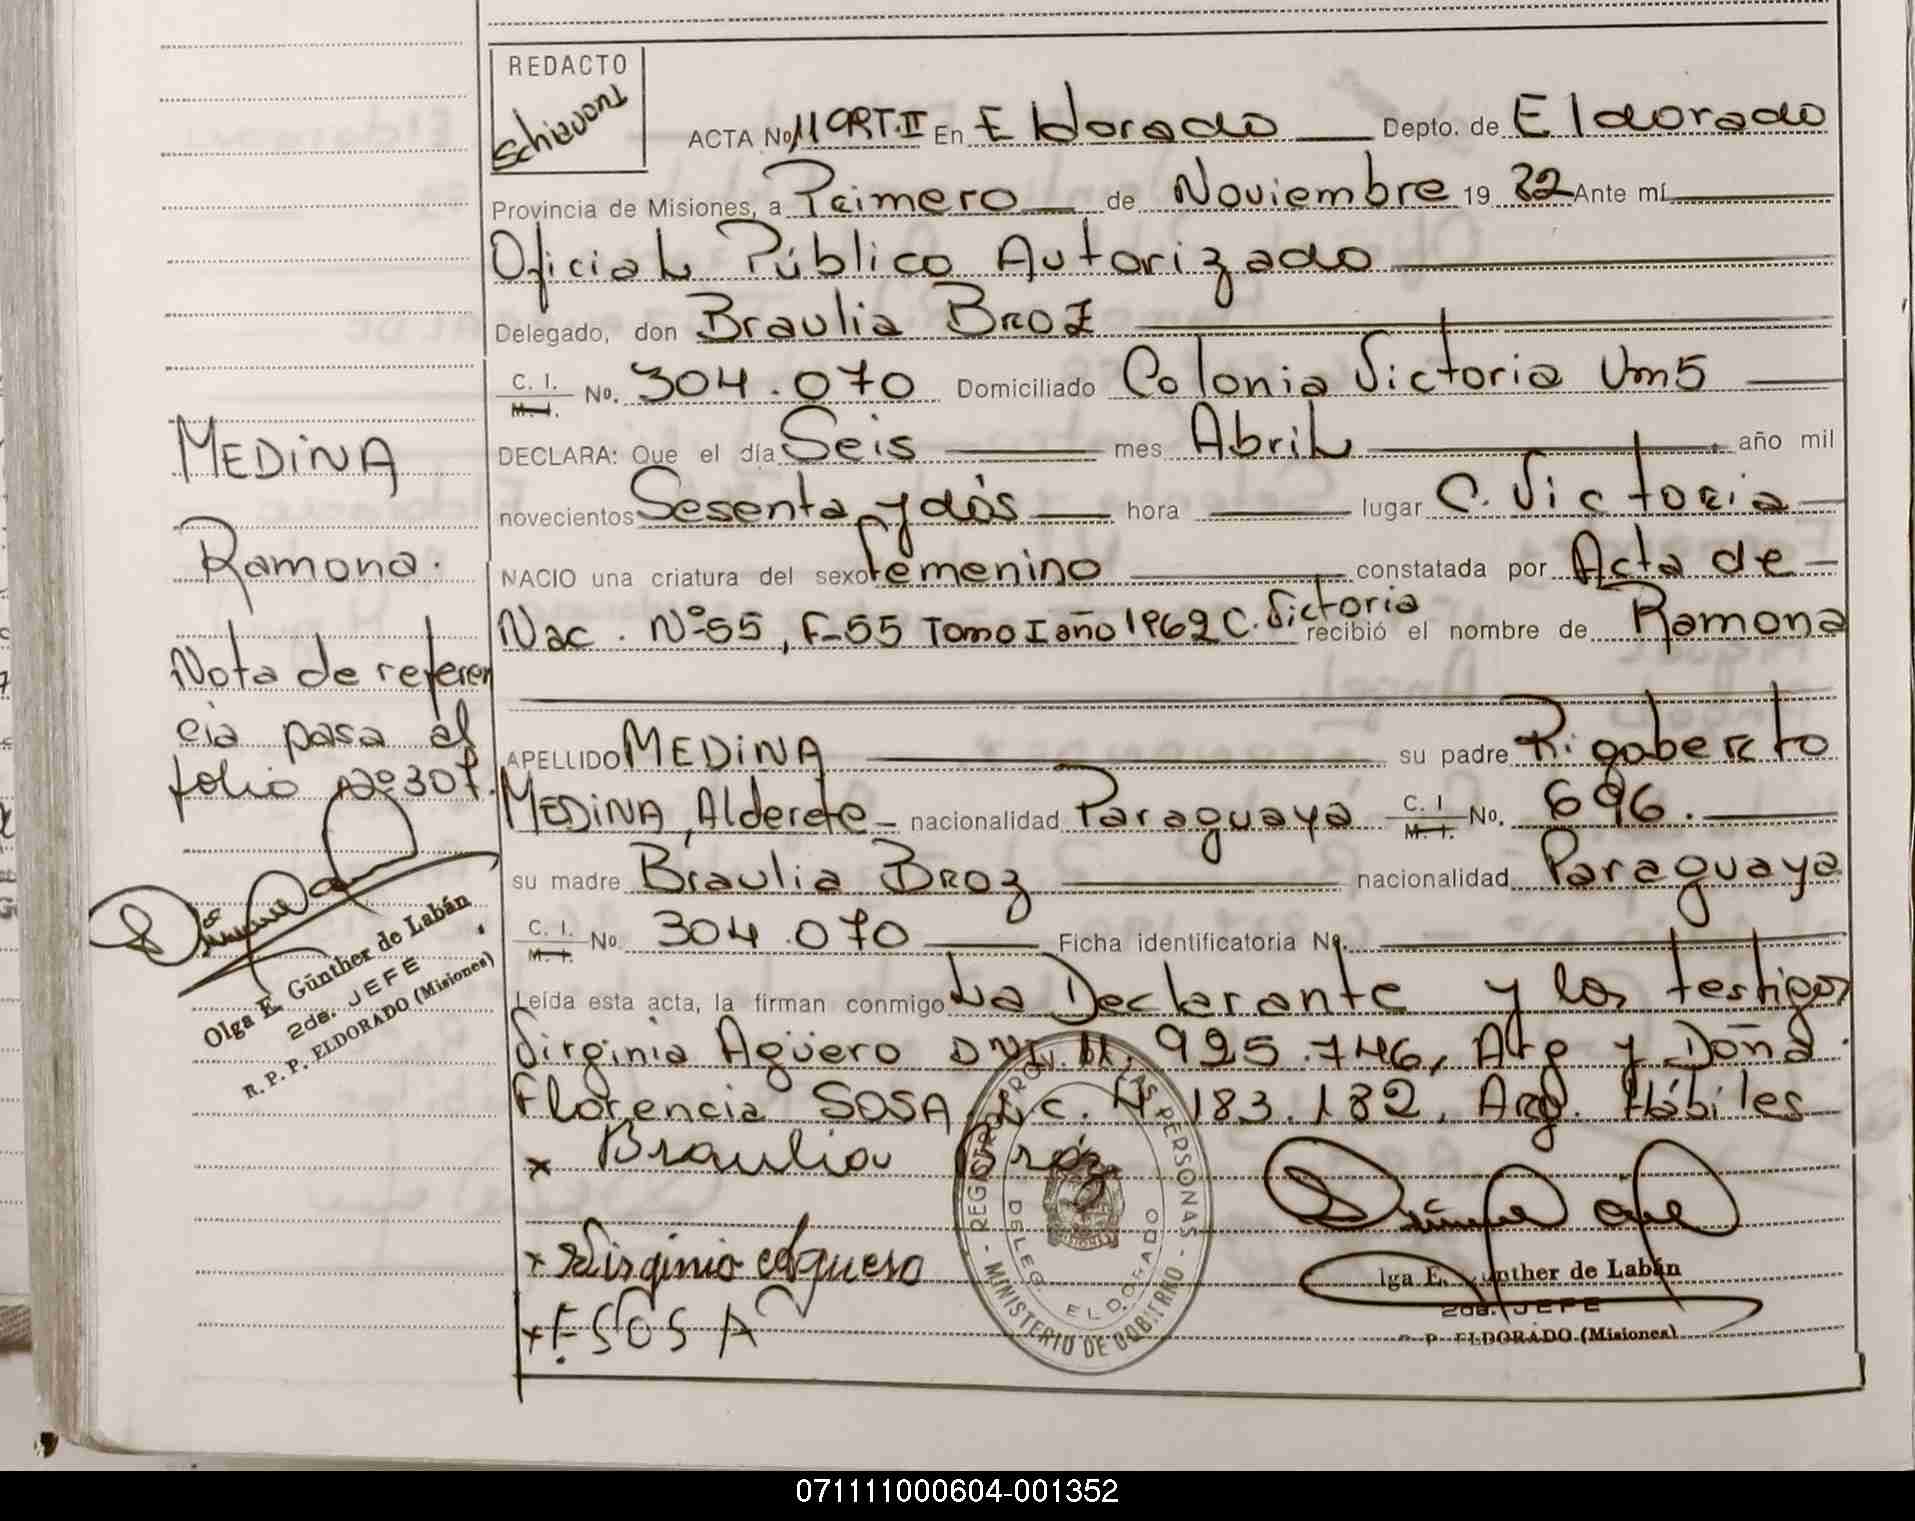 REDACTO
Schiavoni
ACTA No 11 CRT.II En Eldorado Depto. de Eldorado
Provincia de Misiones, a Primero de Noviembre 19 82 Ante mí
Oficial Público Autorizado
Delegado, don Braulia Broz
C. I. M. I. No. 304.070 Domiciliado Colonia Victoria Km5
DECLARA: Que el día Seis mes Abril, año mil
novecientos Sesenta y dós hora lugar C. Victoria
NACIO una criatura del sexo femenino constatada por Acta de
Nac. Nº 55, F-55 Tomo I año 1962 C. Victoria recibió el nombre de Ramona
APELLIDO MEDINA su padre Rigoberto
MEDINA, Alderete nacionalidad Paraguaya C. I. M. I. No. 696.
su madre Braulia Broz nacionalidad Paraguaya
C. I. M. I. No. 304.070 Ficha identificatoria No.
Leída esta acta, la firman conmigo La Declarante y los testigos
Virginia Agüero DNI. 11. 925.746, Arg y Doña
Florencia SOSA L.C. 4.183.182, Arg. Hábiles
x Braulia Bróz
x Virginia Aguero
x F. SOSA
MEDINA
Ramona.
Nota de referen
cia pasa al
folio Nº 307.
Olga E. Günther de Labán
2da. JEFE
R. P. P. ELDORADO (Misiones)
REGISTRO PROV. DE LAS PERSONAS - MINISTERIO DE GOBIERNO -
DELEG. ELDORADO
lga E. Günther de Labán
2da. JEFE
P. ELDORADO (Misiones)
071111000604-001352